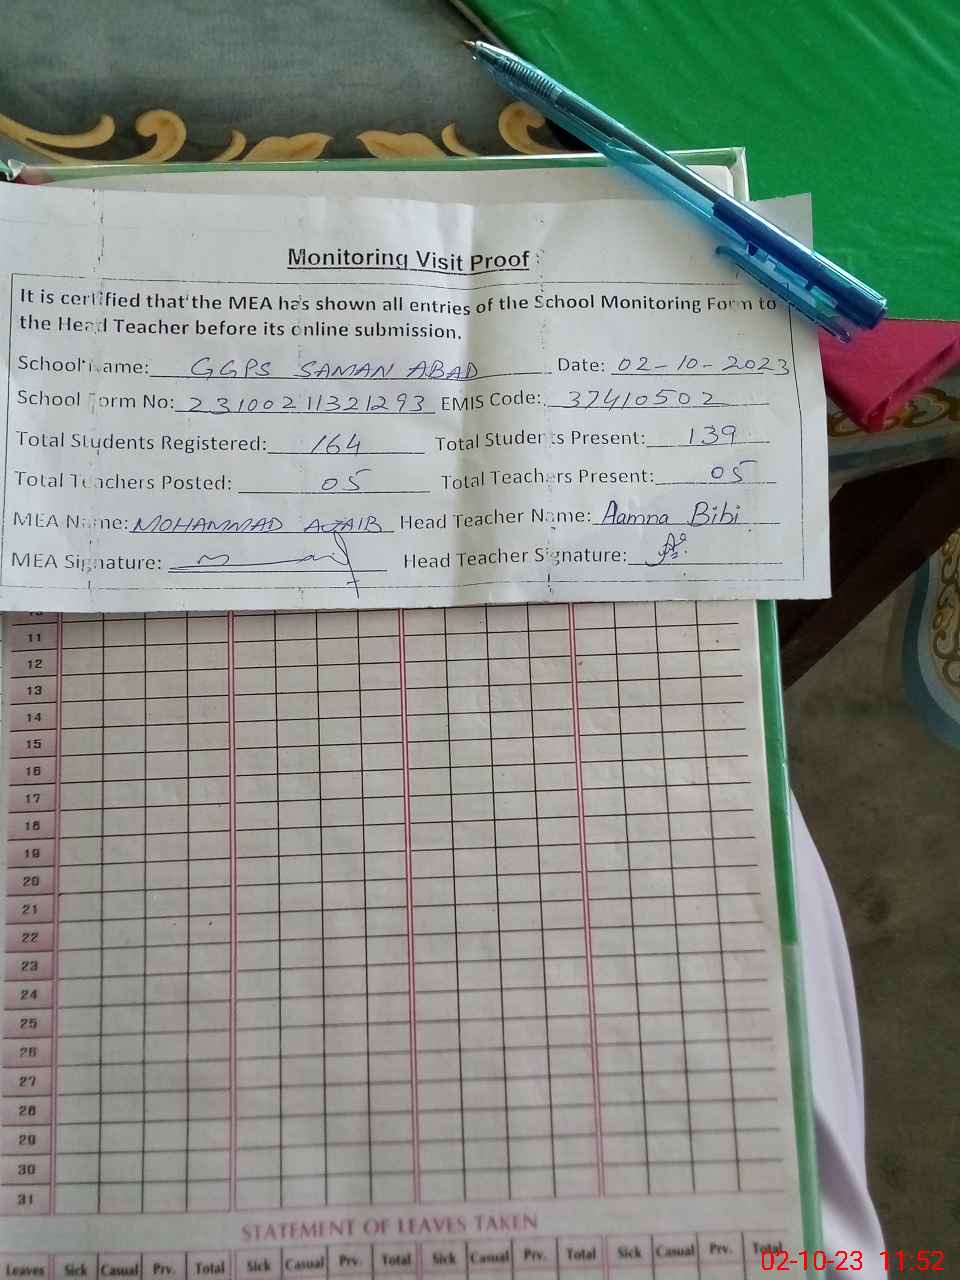 Monitoring Visit Proof
It is certified that the MEA has shown all entries of the School Monitoring Form to
the Head Teacher before its online submission.
School Name: GGPS SAMAN ABAD Date: 02-10-2023
School Form No: 23100211321293 EMIS Code: 37410502
Total Students Registered: 164 Total Students Present: 139
Total Teachers Posted: 05 Total Teachers Present: 05
MEA Name: MOHAMMAD AJZAIB Head Teacher Name: Aamna Bibi
MEA Signature: Head Teacher Signature:
11
12
13
14
15
16
17
18
19
20
21
22
23
24
25
26
27
28
29
30
31
STATEMENT OF LEAVES TAKEN
Leaves Sick Casual Prv. Total Sick Casual Prv. Total Sick Casual Prv. Total Sick Casual Prv. Total
02-10-23 11:52